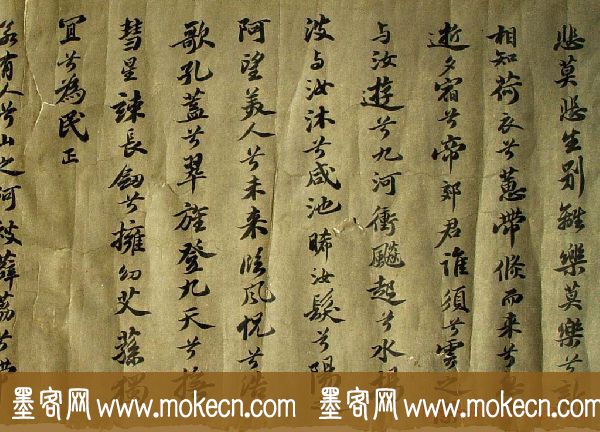 悲莫悲生别離樂莫樂兮
相知荷衣兮蕙帶倏而来兮
逝夕宿兮帝郊君誰須兮雲之
与汝遊兮九河衝飈起兮水
波与汝沐兮咸池晞汝髮兮陽
阿望美人兮未来臨風怳兮浩
歌孔蓋兮翠旌登九天兮撫
彗星竦長劔兮擁幼艾蓀獨
宜兮為民正
若有人兮山之阿被薜荔兮帶
墨客网 www.mokecn.com 墨客网 www.mokecn.com 墨客网 www.mokecn.com